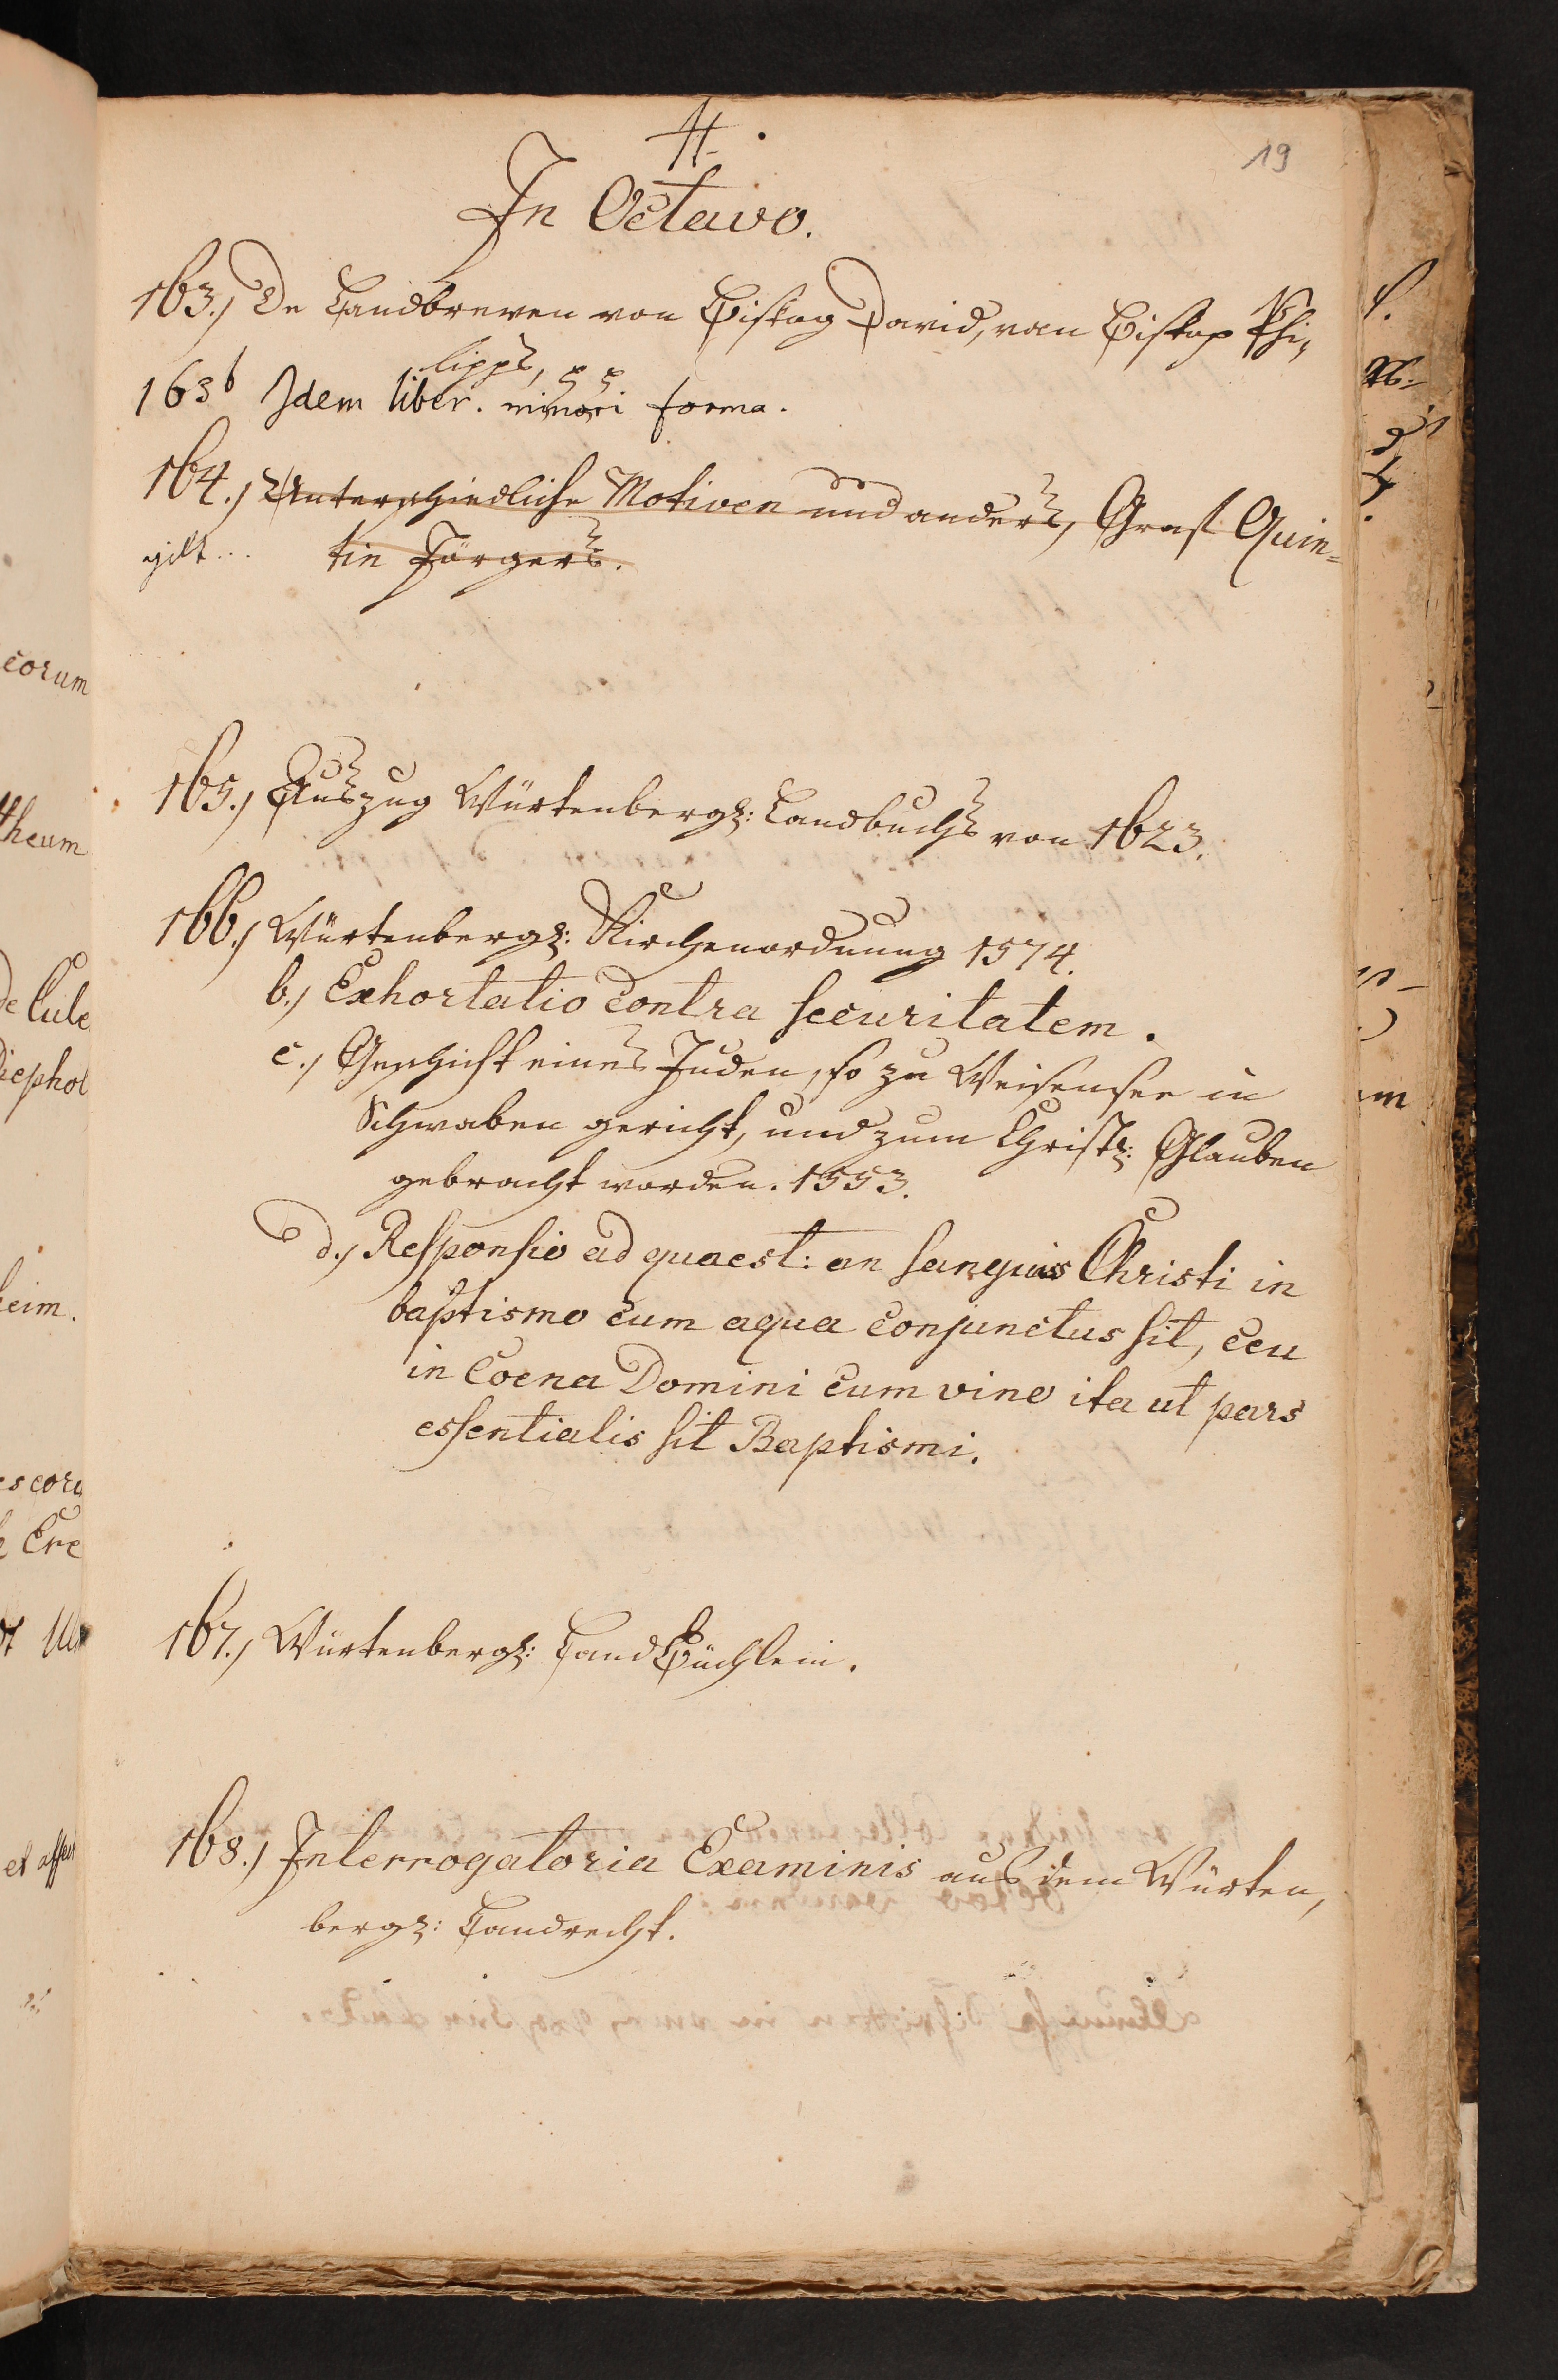 19
In Octavo.
163.) De Landbreven von Bistog David, van Bistop Phi-
lipps,
163b Idem liber. minori forma.
164.) Unterschiedliche Motiven und anders, Graf Quin-
gilt... tin Jörgers.
165.) Auszug Würtenbergs: Landbuchs von 1623.
166.) Würtenbergs: Kirchenordnung 1574.
b.) Exhortatio contra securitatem.
c.) Geschicht eines Juden, so zu Weisensee in
Schwaben gericht, und zum Christl: Glauben
gebracht worden. 1553.
d.) Responsio ad quaest: an sanguis Christi in
baptismo cum aqua conjunctus sit, ceu
in Coena Domini cum vino ita ut pars
essentialis sit Baptismi.
167.) Würtenbergs: LandBüchlein.
168.) Interrogatoria Examinis aus dem Würten-
bergs: Landrecht.
corum
theum
de Cule
Diephol
heim.
Cre
et affect